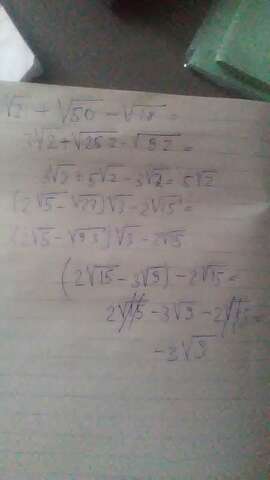 √2 + √50 - √18 =
3√2 + √25 2 - √9 2 =
3√2 + 5√2 - 3√2 = 5√2
(2√5 - √27)√3 - 2√15 =
(2√5 - √9 3)√3 - 2√15
(2√15 - 3√9) - 2√15 =
2√15 - 3√9 - 2√15 =
-3√9